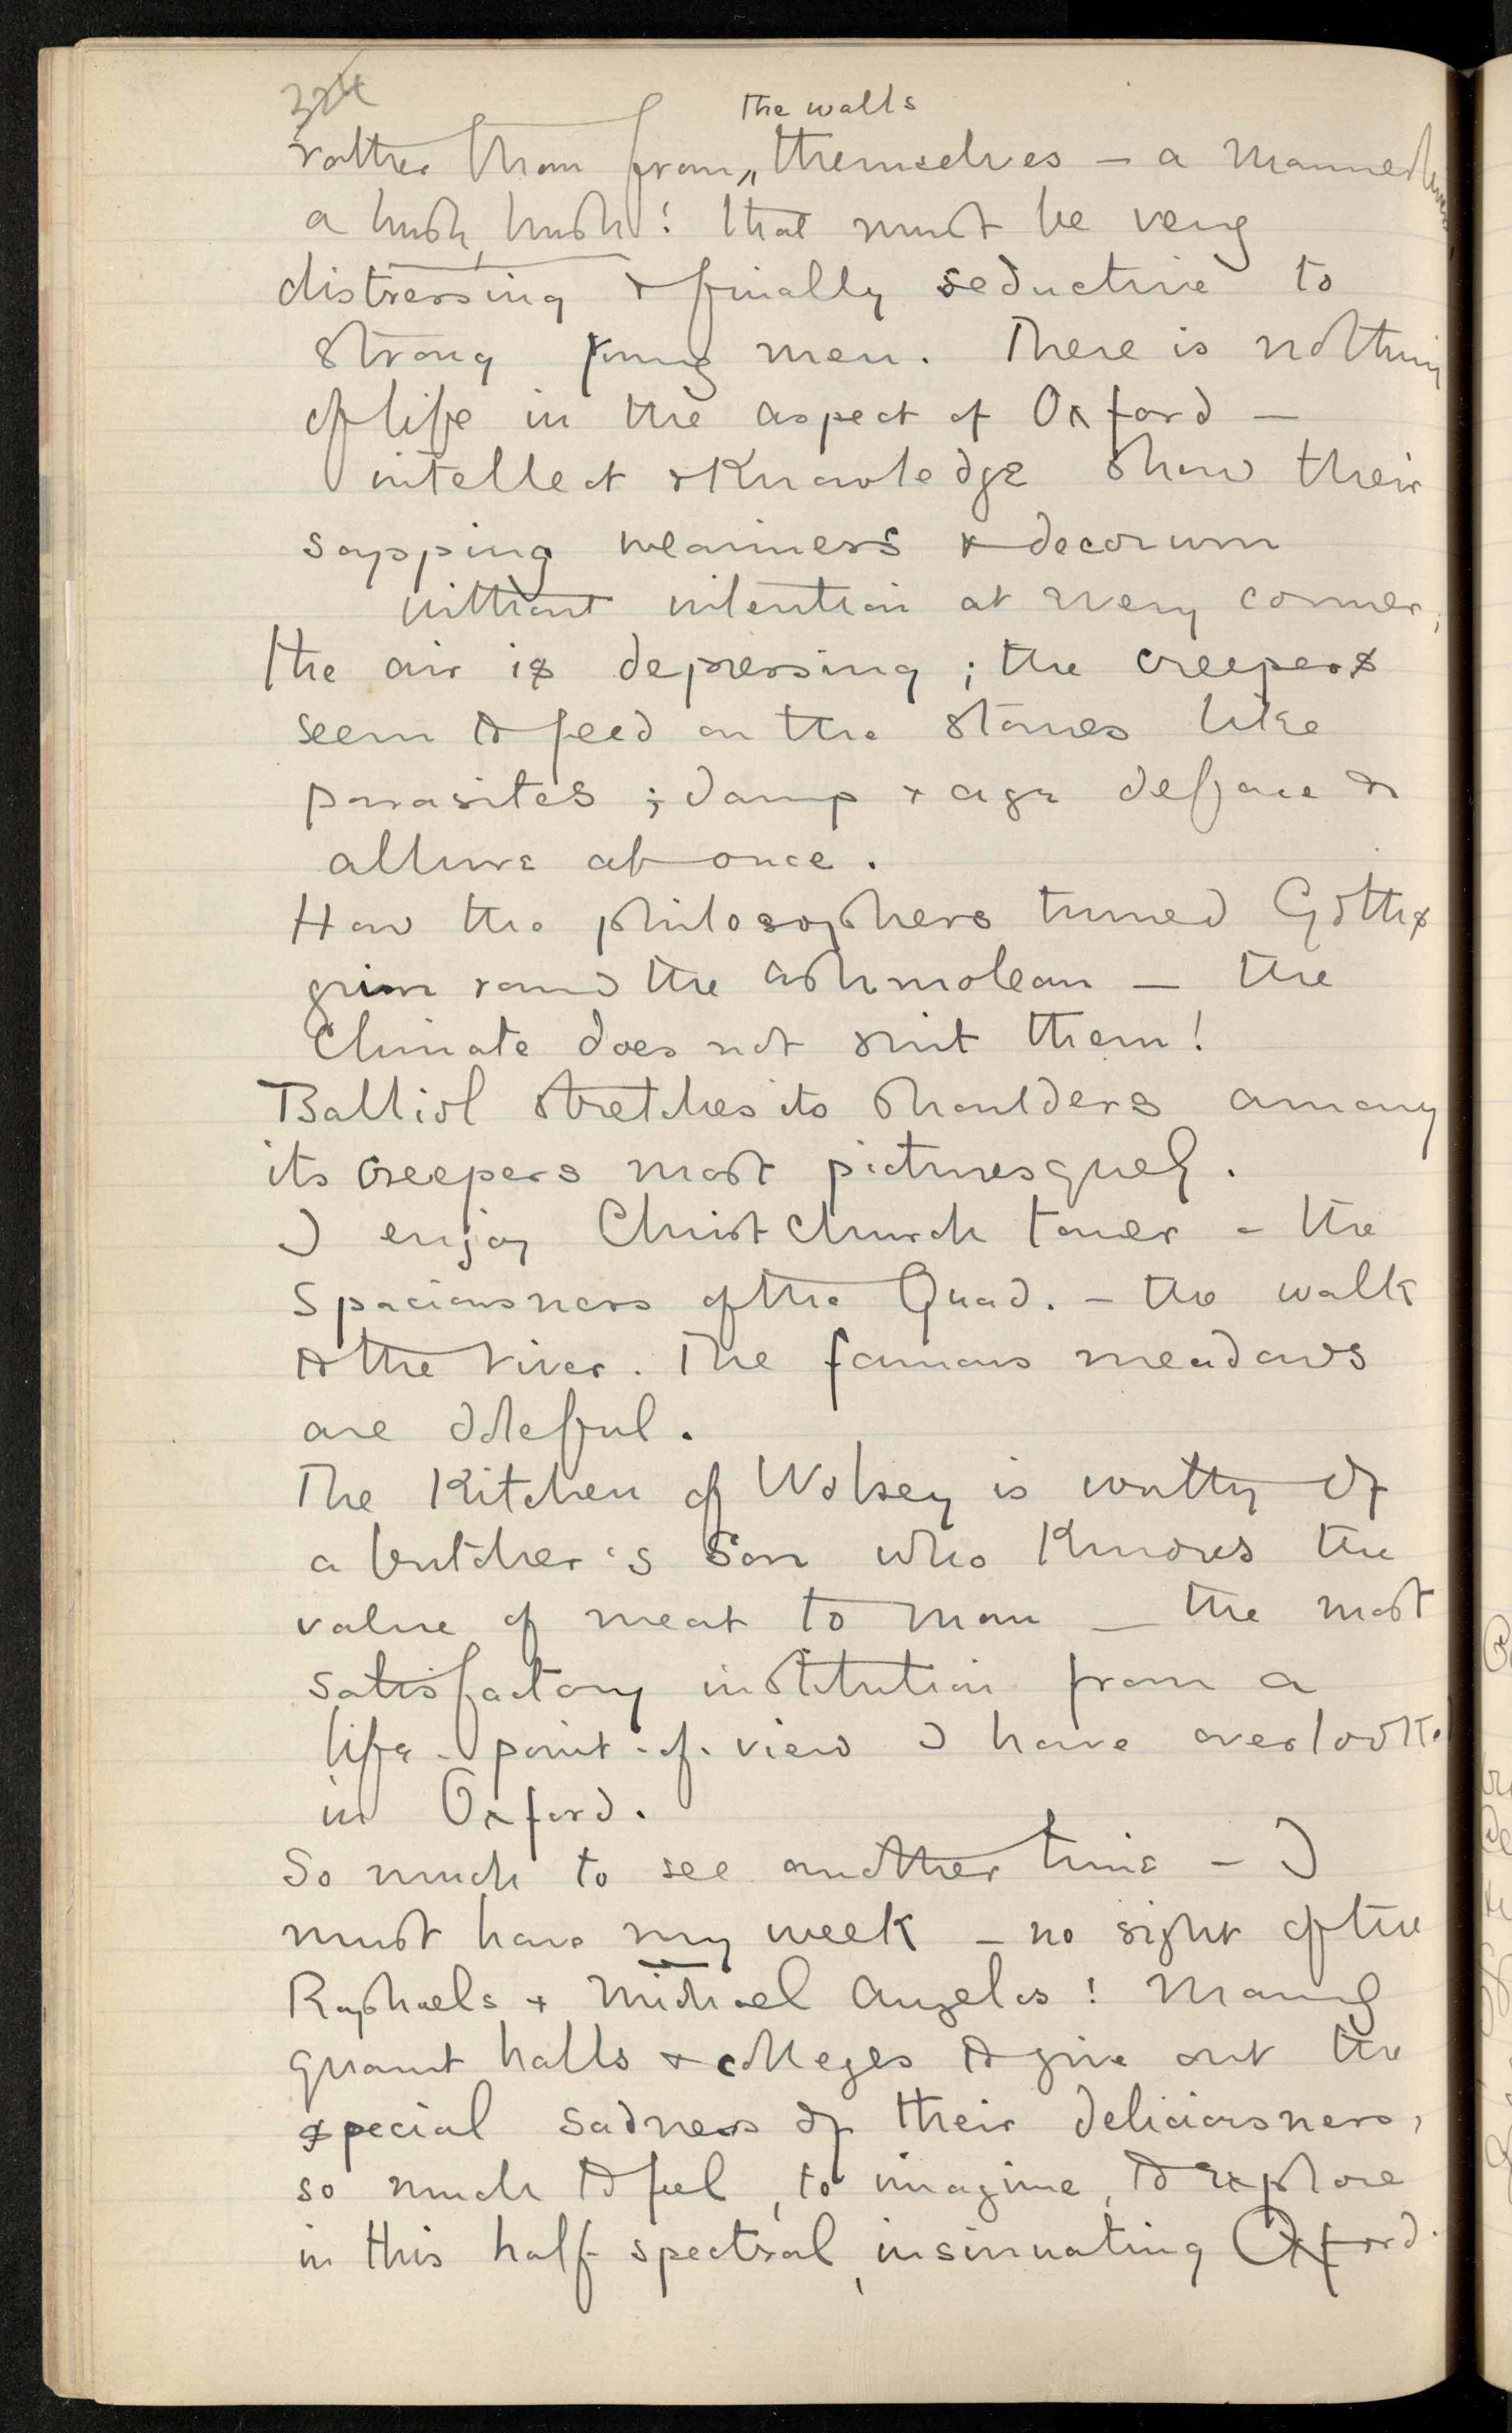 324
the walls
rather than from themselves – a manner
a hush, hush! that must be very
distressing & finally seductive to
strong young men. There is nothing
of life in the aspect of Oxford –
intellect & Knowledge show their
sapping weariness & decorum
without intention at every corner,
the air is depressing ; the creepers
seem to feed on the stones like
parasites ; damp & age deface &
allure at once.
How the philosophers turned Goths
grin round the Ashmolean – the
Climate does not suit them!
Balliol stretches its shoulders among
its creepers most picturesquely.
I enjoy Christ Church tower – the
spaciousness of the Quad. – the walk
to the river. The famous meadows
are doleful.
The Kitchen of Wolsey is worthy of
a butcher's son who Knows the
value of meat to man – the most
satisfactory institution from a
life-point-of-view I have overlookt
in Oxford.
So much to see another time – I
must have my week – no sight of the
Raphaels & Michael Angelos! Many
quaint halls & colleges to give out the
special sadness of their deliciousness,
so much to feel, to imagine, to explore
in this half-spectral, insinuating Oxford.